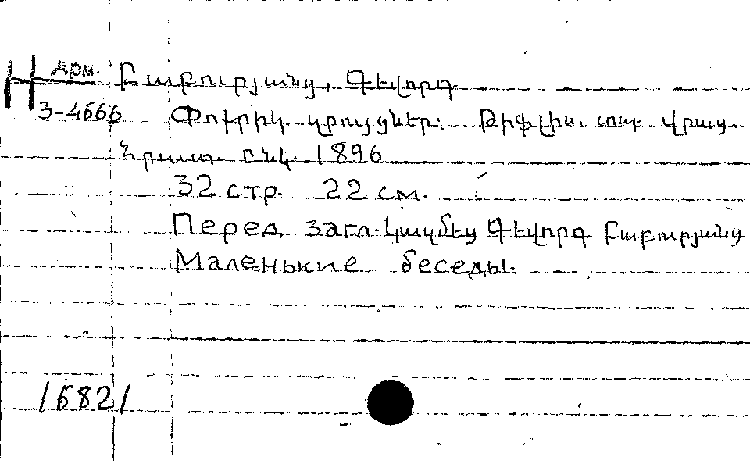 Н арм. Բաբուրյանց, Գևորգ
3-4666 Փոքրիկ զրույցներ. Թիֆլիս. տպ. Վրաց.
Հրատ. ընկ. 1896
32 стр. 22 см.
Перед загл. Կազմեց Գևորգ Բաբուրյանց
Маленькие беседы.
16821